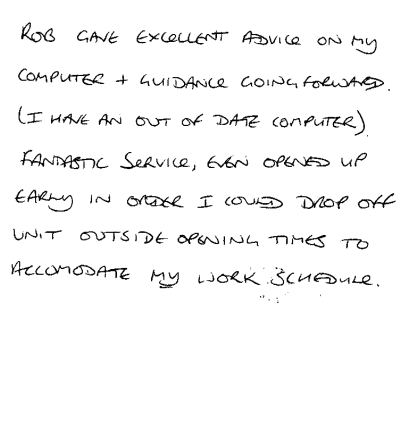 ROB GAVE EXCELLENT ADVICE ON MY
COMPUTER + GUIDANCE GOING FORWARD.
(I HAVE AN OUT OF DATE COMPUTER)
FANTASTIC SERVICE, EVEN OPENED UP
EARLY IN ORDER I COULD DROP OFF
UNIT OUTSIDE OPENING TIMES TO
ACCOMODATE MY WORK SCHEDULE.